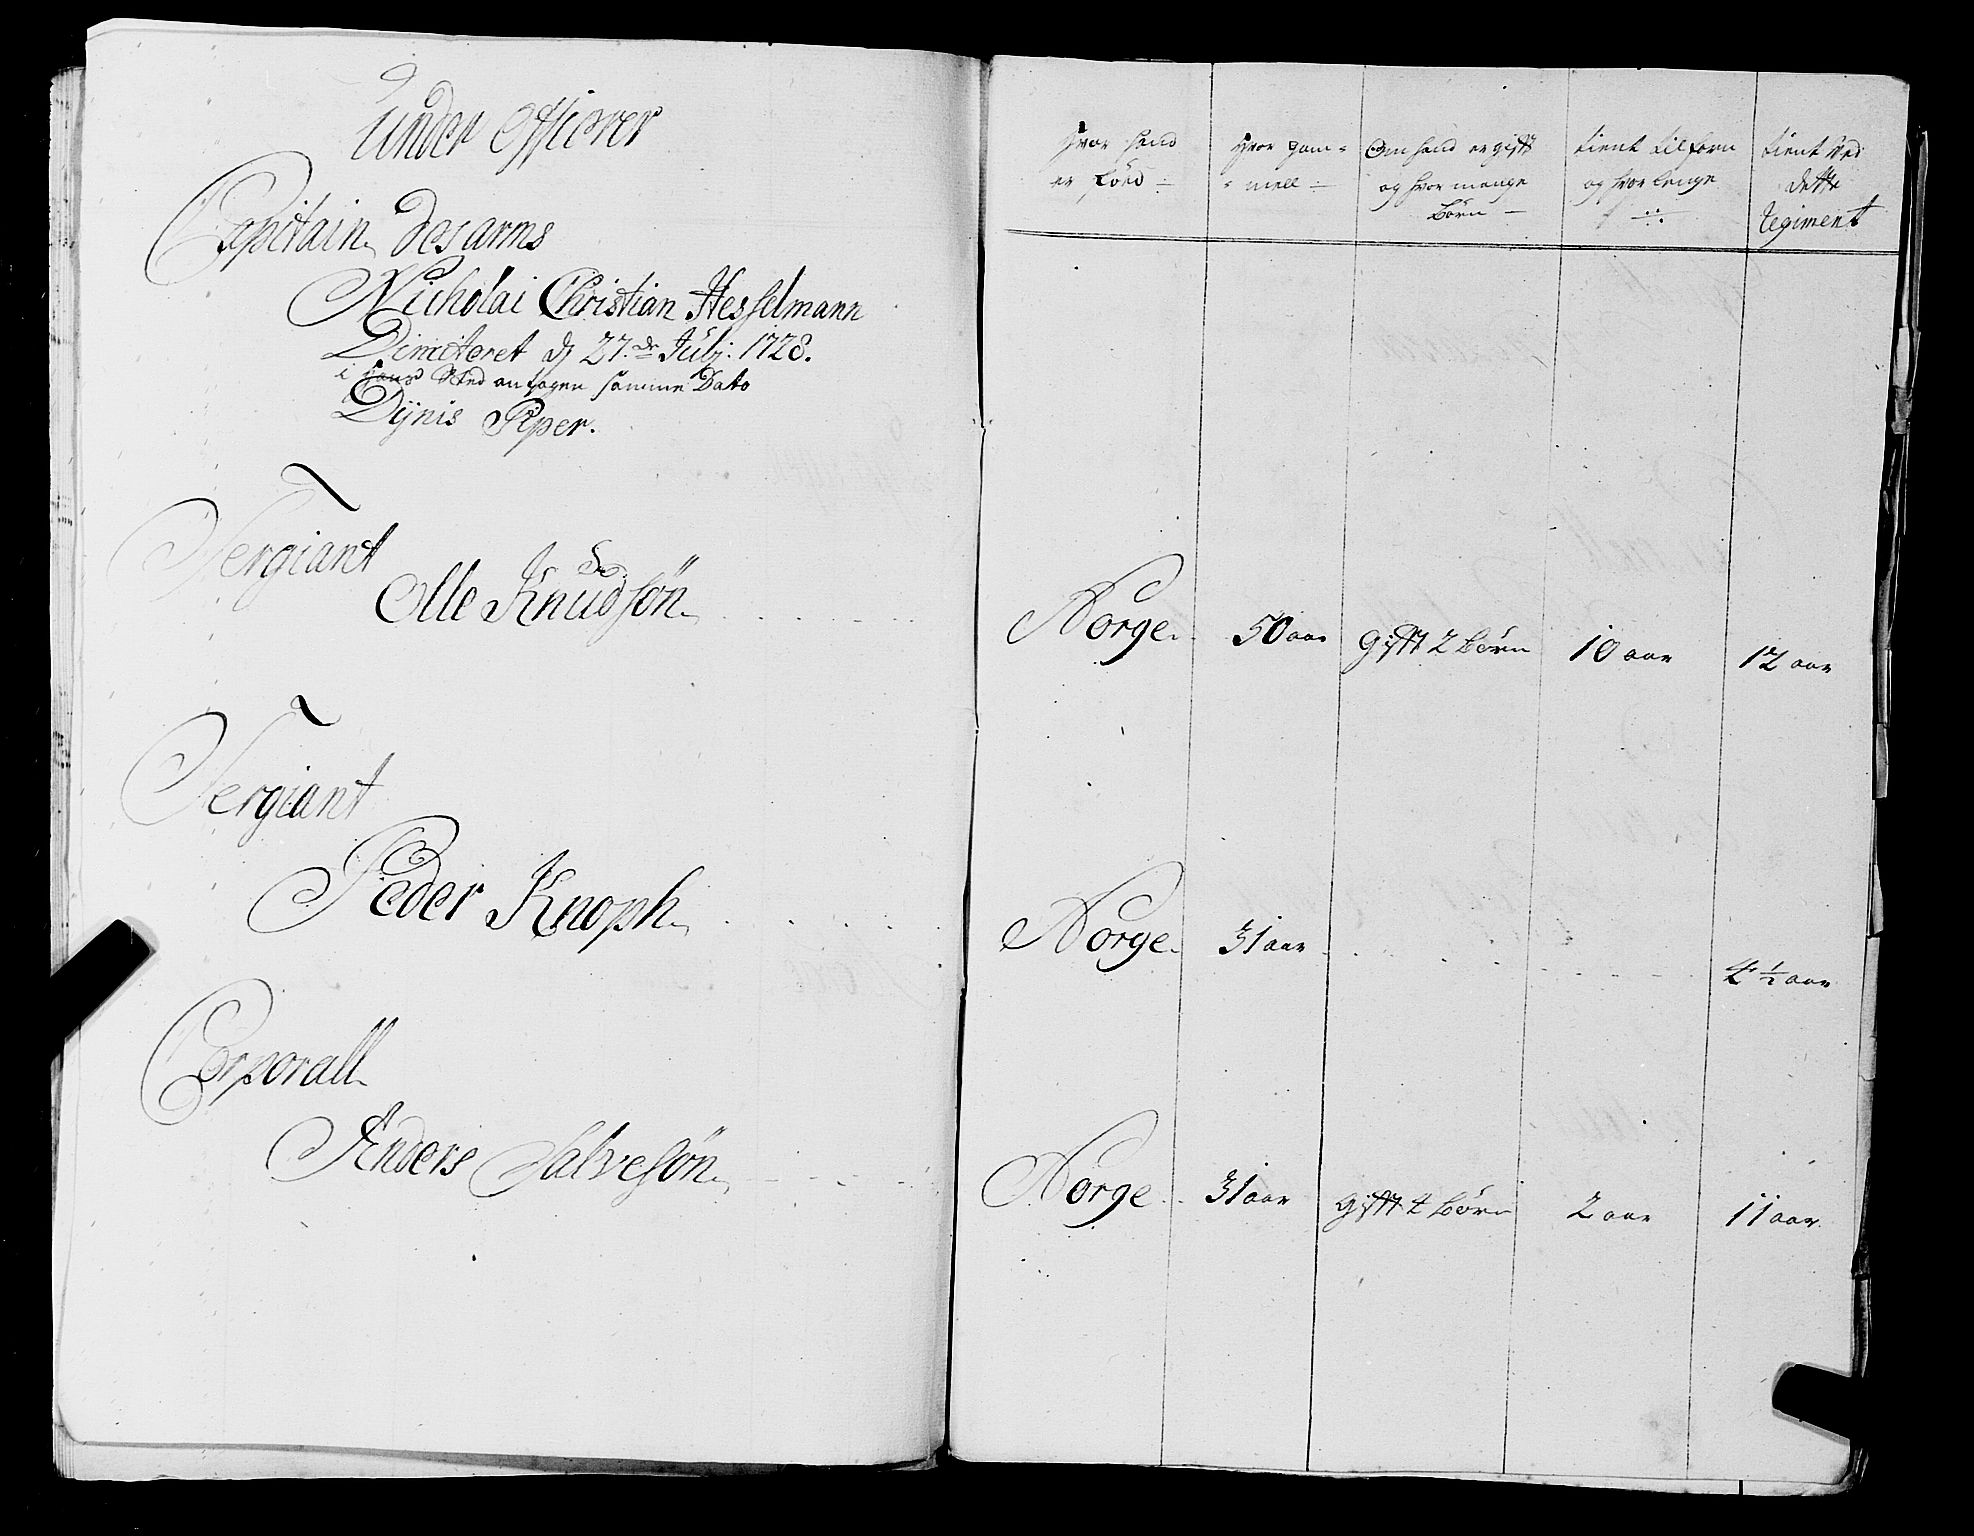 Under Officerer
Capitain Des arms
Nicholai Christian Hesselmann
Dimitteret d 27.de Julj: 1728.
i hans Sted antagen samme Dato
Dÿnis Piper.
Sergiant
Olle Knudsøn
Sergiant
Peder Knoph
Corporall
Anders Salvesøn
Hvor hand er føed
Hvor gam-mell
Om hand er gift og hvor mange Børn
tient tilforn og hvor lenge
tient ved dette Regiment
Norge. 50 aar gift 2 børn 10 aar 12 aar
Norge. 31 aar 4 ½ aar
Norge 31 aar gift 4 børn 2 aar 11 aar